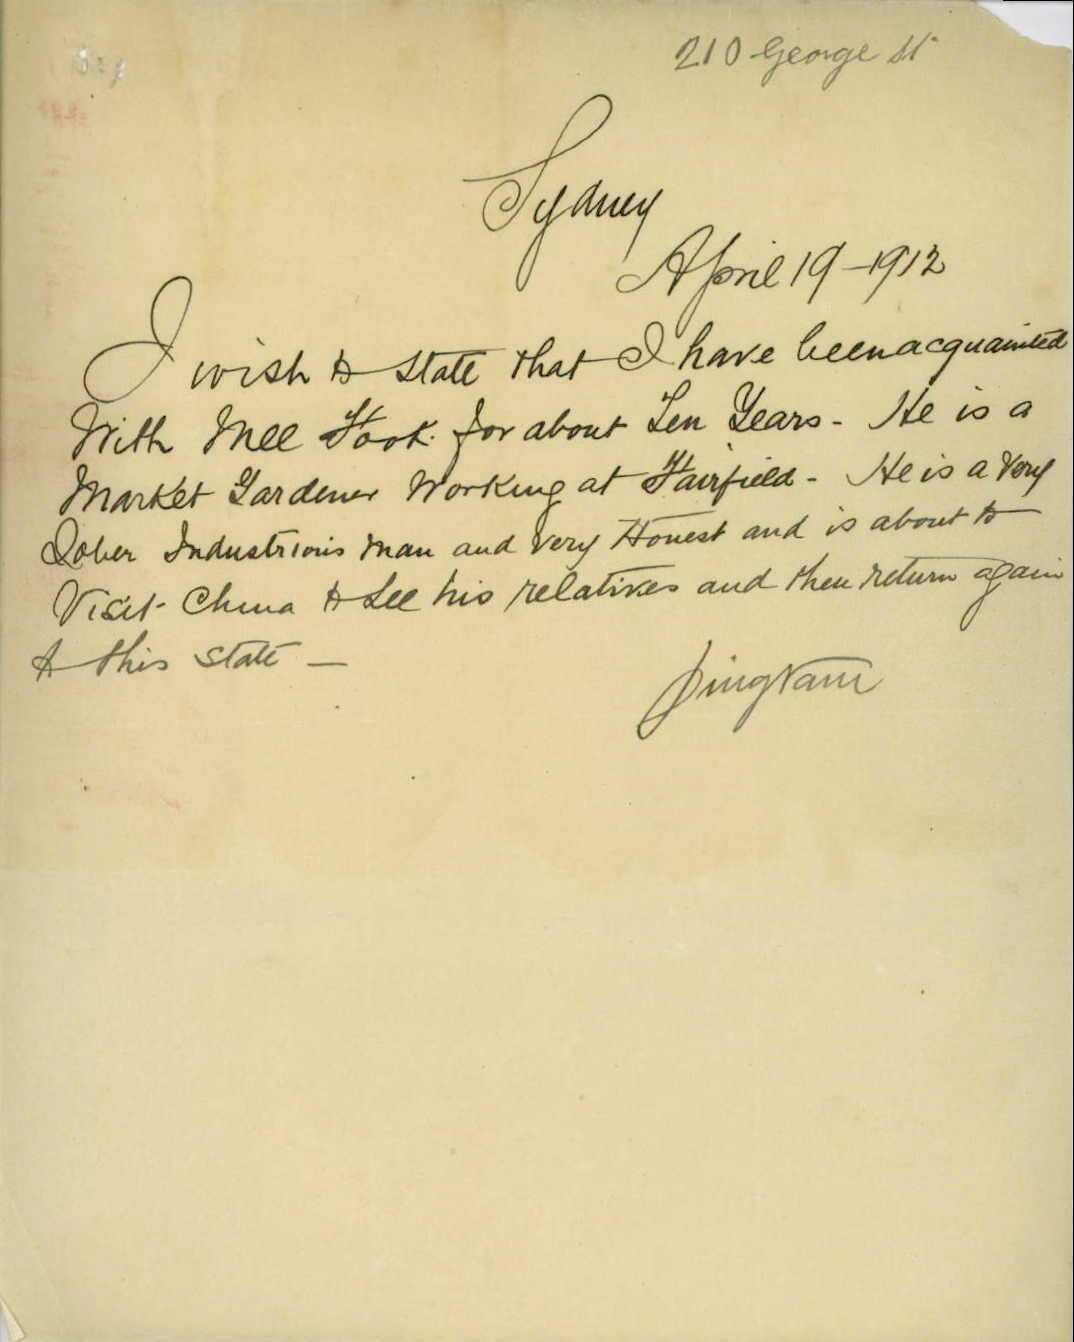 210 George St
Sydney
April 19 - 1912
I wish to state that I have been acquainted
With Mee Fook for about Ten Years - He is a
Market Gardener Working at Fairfield - He is a very
Sober Industrious man and very Honest and is about to
Visit China to See his relatives and then return again
to this state -